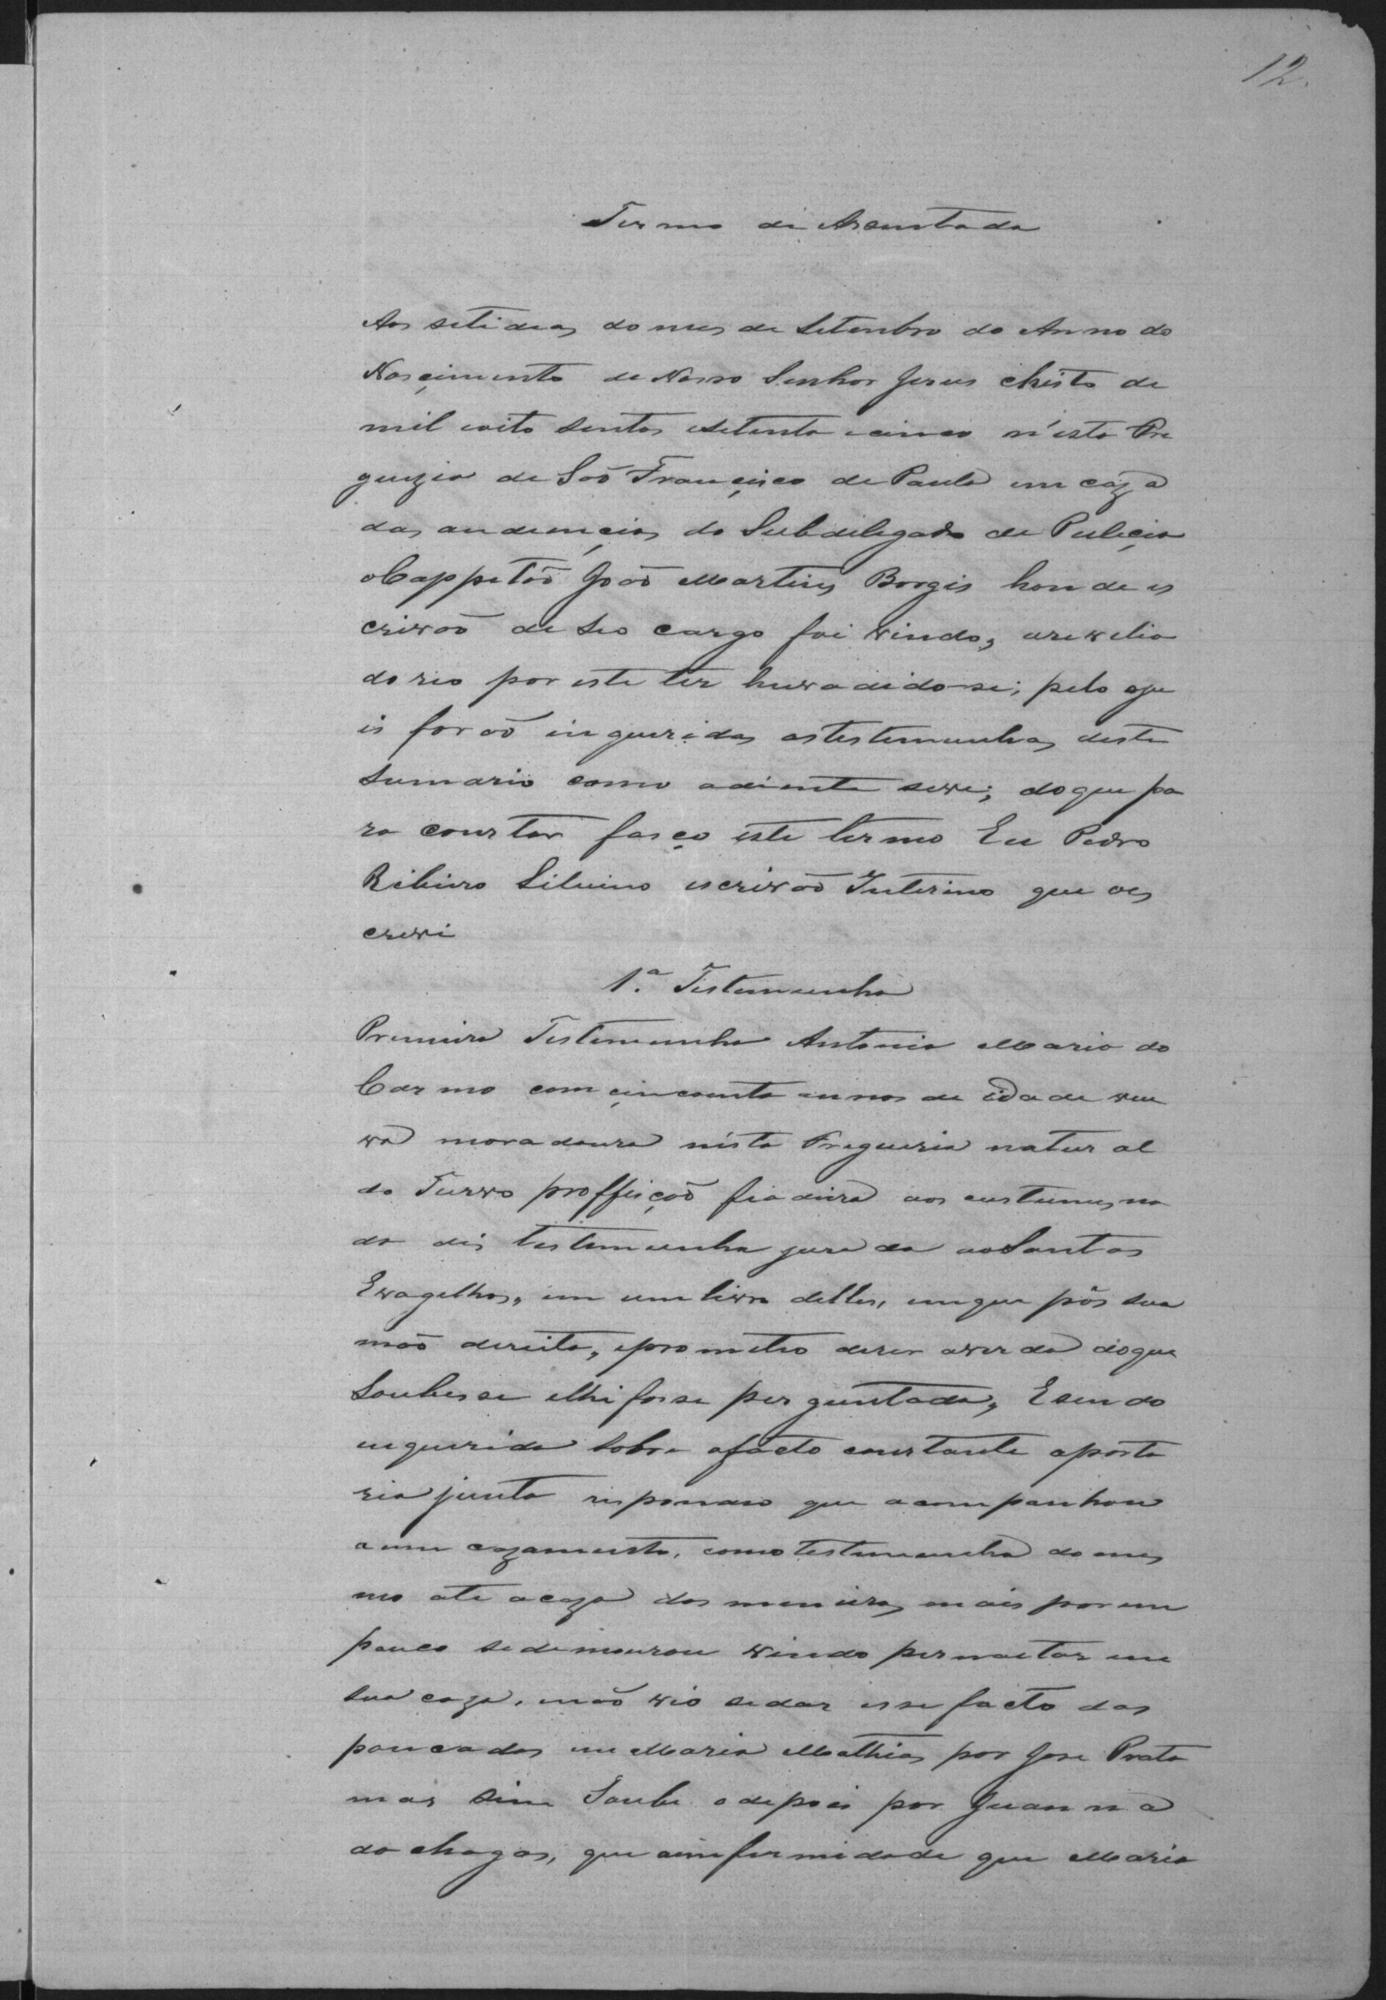 12.
Termo de Assentada
Aos seti dias do mes de Setembro do Anno do
Nasçimento de Nosso Senhor Jesus Christo de
mil oito sentos esetenta e cinco n'esta Fre
guezia de Saõ Françisco de Paula em caza
das audiençias do Subdilegado de Puliçia
o Cappitaõ Joaõ Martins Borgis honde es
crivaõ de seo cargo foi vindo, arevelia
do reo por este ter huvadido-se; pelo que
is foraõ inqueridas as testemunhas deste
sumario como adiente seve; do que pa
ra constar fasço este termo Eu Pedro
Ribeiro Silvino escrivaõ Interino que oes
crevi
1.ª Testemunha
Premeira Testemunha Antonia Maria do
Carmo com çincoenta annos de idade veu
va moradoura nista Fregueria natural
do Turvo proffiçaõ fiadeira aos custumes na
da dis testemunha jurada aoSantos
Evagelhos, em um livro delles, emque pôs sua
maõ direita, eprometeo diser averda doque
Soubesse elhi fosse perguntada, E sendo
enquerida sobre ofacto constante aporta
ria junta respondeo que acompanhou
a um cazamento, como testemunha do mes
mo ate acaza dos meneiros mais por um
pouco sedemourou vindo pernoitar em
sua caza, naõ vio sedar esse facto das
pancadas em Maria Mathias por Jose Prata
mas sim Soube odepois por Juanna
do chagas, que aimfermidade que Maria